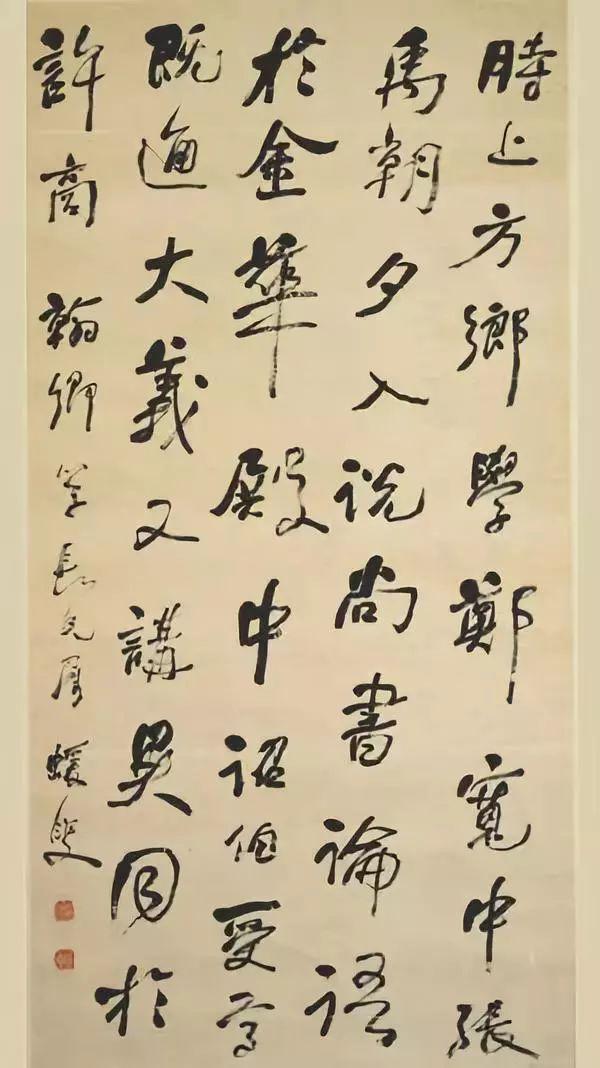 時上方鄉學鄭寬中張
禹朝夕入説尚書論語
於金華殿中詔伯受焉
既通大義又講異同於
許商 翰卿學長兄屬 蝯叟